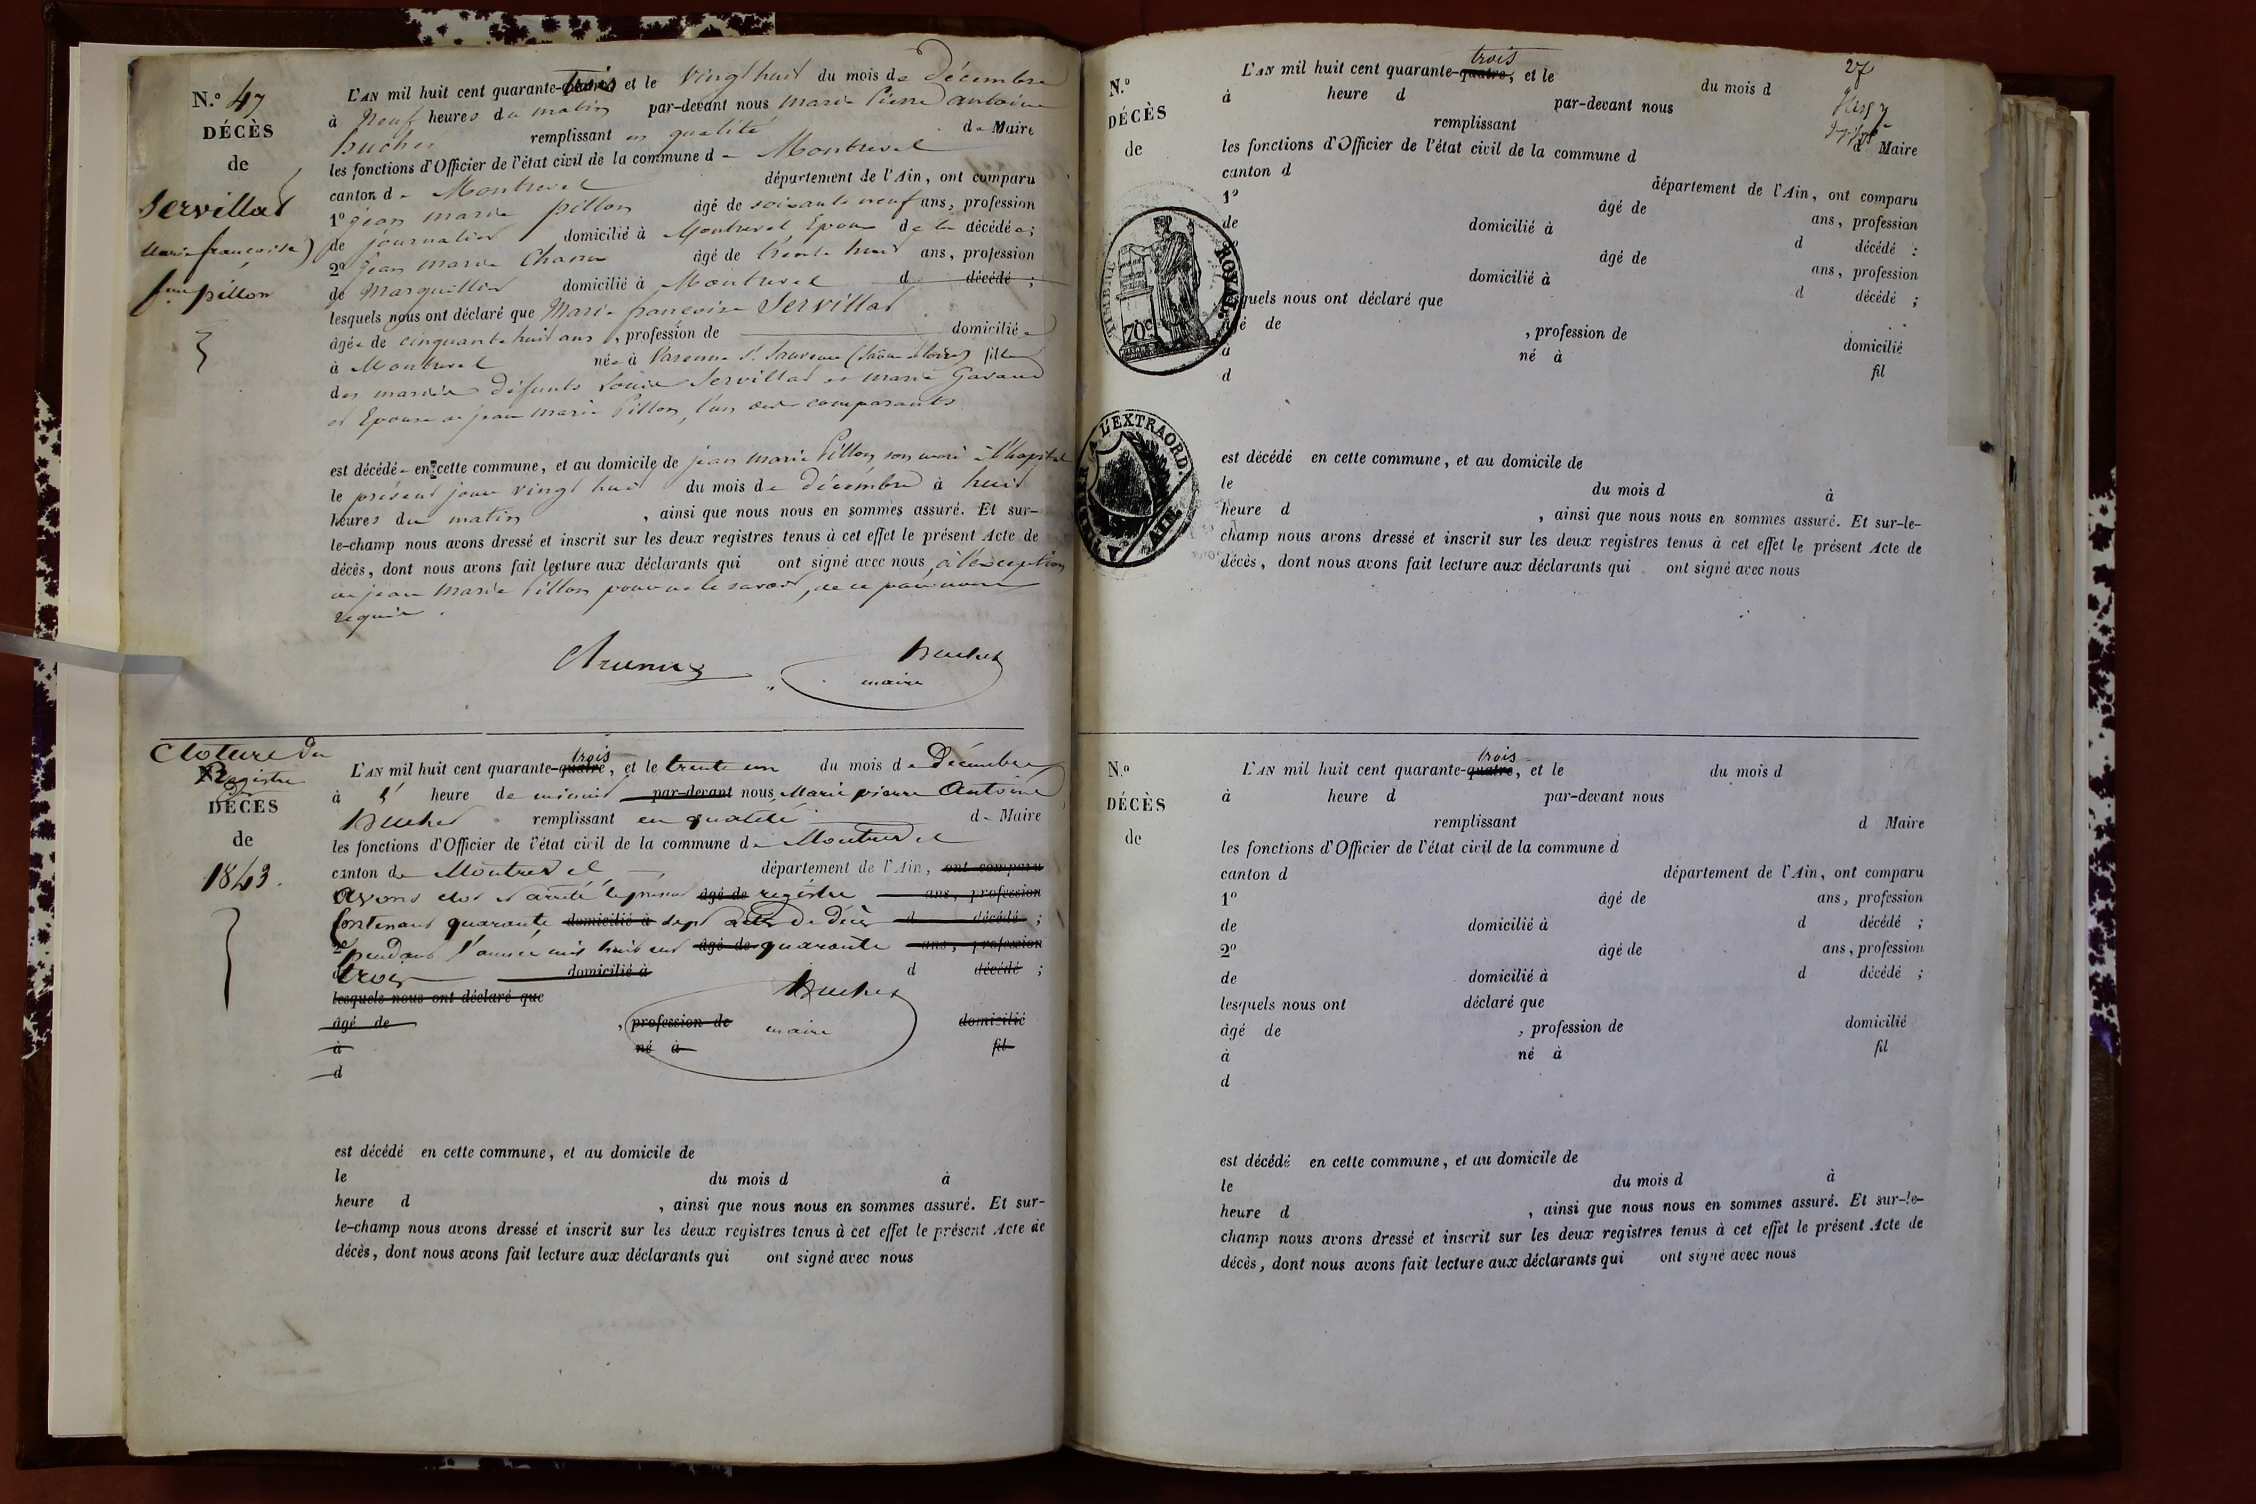 N.º 47
DÉCÈS
de
Servillat
Marie françoise
fme pillon
L'AN mil huit cent quarante-trois et le vingt huit du mois de Décembre
à neuf heures du matin par-devant nous marie Pierre antoine
buchet remplissant en qualité de Maire
les fonctions d'Officier de l'état civil de la commune de Montrevel
canton de Montrevel département de l'Ain, ont comparu
1º jean marie pillon âgé de soixante neuf ans, profession
de journalier domicilié à Montrevel Epoux de la décédée;
2º jean marie Chanu âgé de trente huit ans, profession
de Marguillier domicilié à Montrevel d décédé ;
lesquels nous ont déclaré que Marie françoise Servillat
âgée de cinquante huit ans, profession de domiciliée
à Montrevel née à Varenne St Sauveur (Saône et Loire) fille
des mariés défunts Louis Servillat et marie Gavand
et Epouse de jean marie Pillon, l'un des comparants
est décédée en cette commune, et au domicile de jean marie Pillon son mari à l'hopital
le présent jour vingt huit du mois de décembre à huit
heures du matin, ainsi que nous nous en sommes assuré. Et sur-
le-champ nous avons dressé et inscrit sur les deux registres tenus à cet effet le présent Acte de
décès, dont nous avons fait lecture aux déclarants qui ont signé avec nous à l'exception
de jean Marie Pillon pour ne le savoir, de ce
requis.
Buchet
maire
Cloture du
Registre
DÉCÈS
de
1843.
L'AN mil huit cent quarante-quatre trois, et le trente un du mois de Décembre
à heure de minuit par-devant nous Marie pierre Antoine
Buchet remplissant en qualité de Maire
les fonctions d'Officier de l'état civil de la commune de Montrevel
canton de Montrevel département de l'Ain, ont comparu
avons clos et arrêté le présent âgé de registre ans, profession
Contenant quarante domicilié à sept actes de Décès d décédé ;
2º pendant l'année mil huit cent âgé de quarante ans, profession
trois domicilié à d décédé ;
lesquels nous ont déclaré que
âgé de , profession de domicilié
à né à fil
d
Buchet
maire
est décédé en cette commune, et au domicile de
le du mois d à
heure d , ainsi que nous nous en sommes assuré. Et sur-
le-champ nous avons dressé et inscrit sur les deux registres tenus à cet effet le présent Acte de
décès, dont nous avons fait lecture aux déclarants qui ont signé avec nous
27
N.º
DÉCÈS
de
L'AN mil huit cent quarante-quatre trois, et le du mois d
à heure d par-devant nous
remplissant d Maire
les fonctions d'Officier de l'état civil de la commune d
canton d département de l'Ain, ont comparu
1º âgé de ans, profession
de domicilié à d décédé :
âgé de ans, profession
domicilié à d décédé ;
quels nous ont déclaré que
gé de , profession de domicilié
à né à fil
d
TIMBRE ROYAL
70c
A L'EXTRAORD.
AIN
est décédé en cette commune, et au domicile de
le du mois d à
heure d , ainsi que nous nous en sommes assuré. Et sur-le-
champ nous avons dressé et inscrit sur les deux registres tenus à cet effet le présent Acte de
décès, dont nous avons fait lecture aux déclarants qui ont signé avec nous
N.º
DÉCÈS
de
L'AN mil huit cent quarante-quatre trois, et le du mois d
à heure d par-devant nous
remplissant d Maire
les fonctions d'Officier de l'état civil de la commune d
canton d département de l'Ain, ont comparu
1º âgé de ans, profession
de domicilié à d décédé ;
2º âgé de ans, profession
de domicilié à d décédé ;
lesquels nous ont déclaré que
âgé de , profession de domicilié
à né à fil
d
est décédé en cette commune, et au domicile de
le du mois d à
heure d , ainsi que nous nous en sommes assuré. Et sur-le-
champ nous avons dressé et inscrit sur les deux registres tenus à cet effet le présent Acte de
décès, dont nous avons fait lecture aux déclarants qui ont signé avec nous